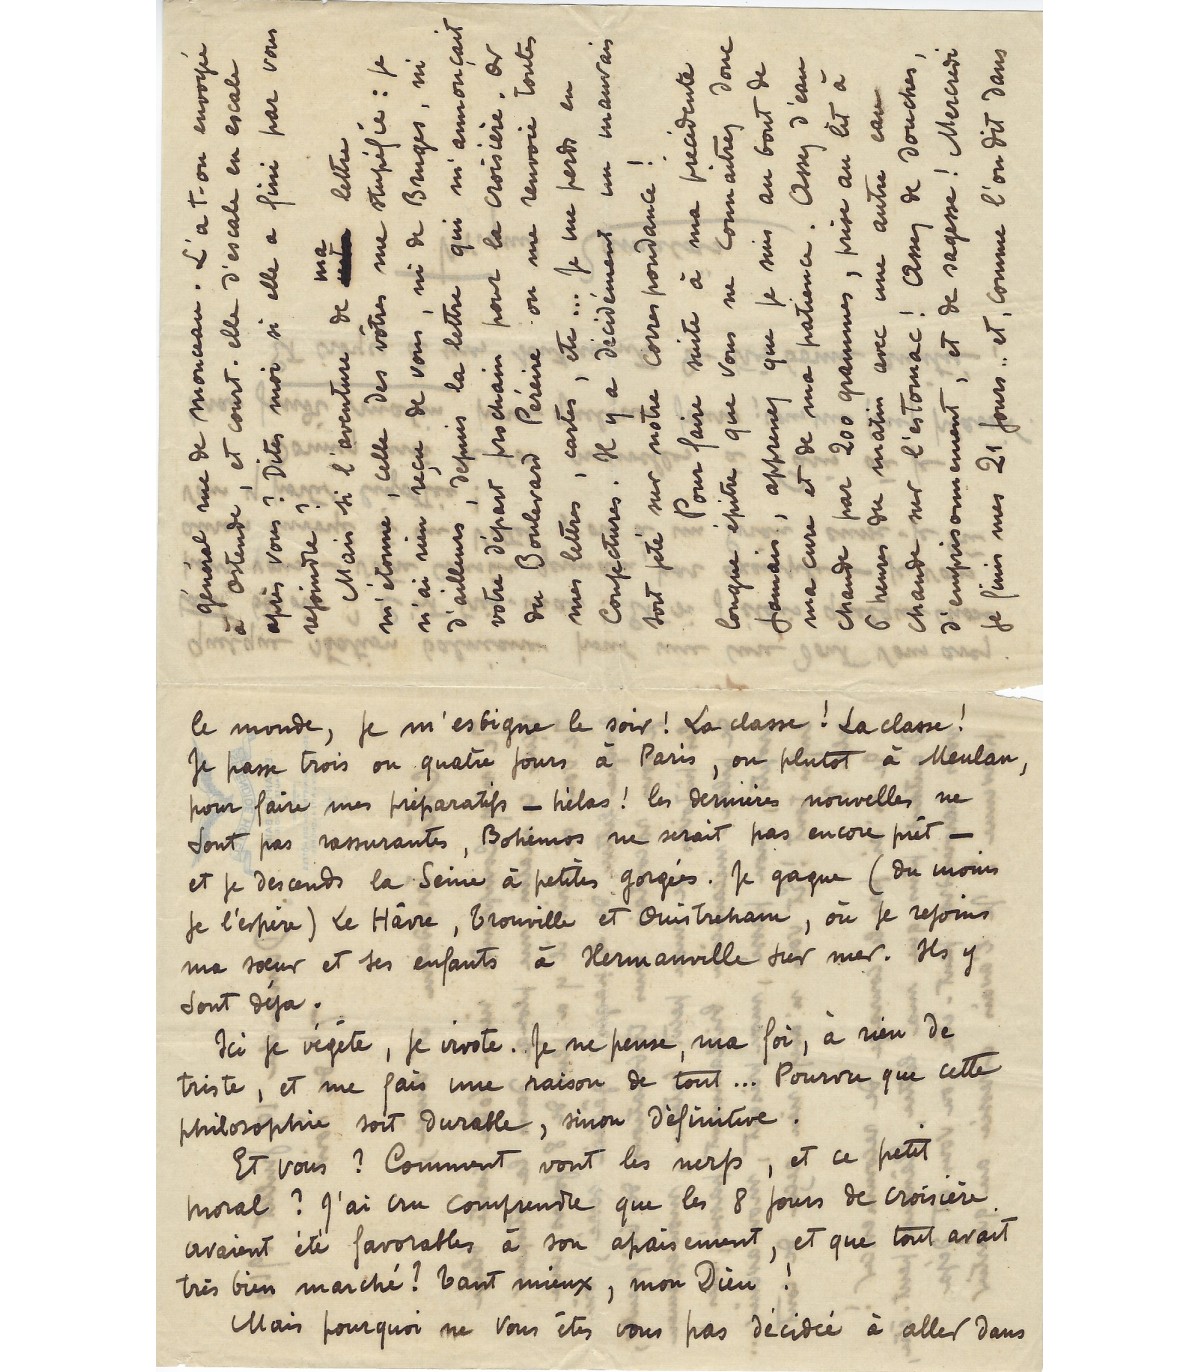 général rue de Monceau. L'a t-on envoyée
à Ostende, et court-elle d'escale en escale
après vous ? Dites moi si elle a fini par vous
rejoindre ?
Mais si l'aventure de ma lettre
m'étonne, celle des vôtres me stupéfie : je
n'ai rien reçu de vous, ni de Bruges, ni
d'ailleurs, depuis la lettre qui m'annonçait
votre départ prochain pour la croisière. Or
du Boulevard Péreire on me renvoie toutes
mes lettres, cartes, etc... Je me perds en
conjectures. Il y a décidément un mauvais
sort jeté sur notre correspondance !
Pour faire suite à ma précédente
longue épître que vous ne connaîtrez donc
jamais, apprenez que je suis au bout de
ma cure et de ma patience. Assez d'eau
chaude par 200 grammes, prise au lit à
6 heures du matin avec une autre eau
chaude sur l'estomac ! Assez de douches,
d'emprisonnement, et de sagesse ! Mercredi
je finis mes 21 jours.. et, comme l'on dit dans
le monde, je m'esbigne le soir ! La classe ! La classe !
Je passe trois ou quatre jours à Paris, ou plutot à Meulan,
pour faire mes préparatifs – hélas ! les dernières nouvelles ne
sont pas rassurantes, Bohémos ne serait pas encore prêt –
et je descends la Seine à petites gorgées. Je gagne (du moins
je l'espère) Le Hâvre, Trouville et Ouistreham, où je rejoins
ma sœur et ses enfants à Hermanville sur mer. Ils y
sont déja.
Ici je végète, je vivote. Je ne pense, ma foi, à rien de
triste, et me fais une raison de tout... Pourvu que cette
philosophie soit durable, sinon définitive.
Et vous ? Comment vont les nerfs, et ce petit
moral ? J'ai cru comprendre que les 8 jours de croisière
avaient été favorables à son apaisement, et que tout avait
très bien marché ? Tant mieux, mon Dieu !
Mais pourquoi ne vous êtes vous pas décidée à aller dans